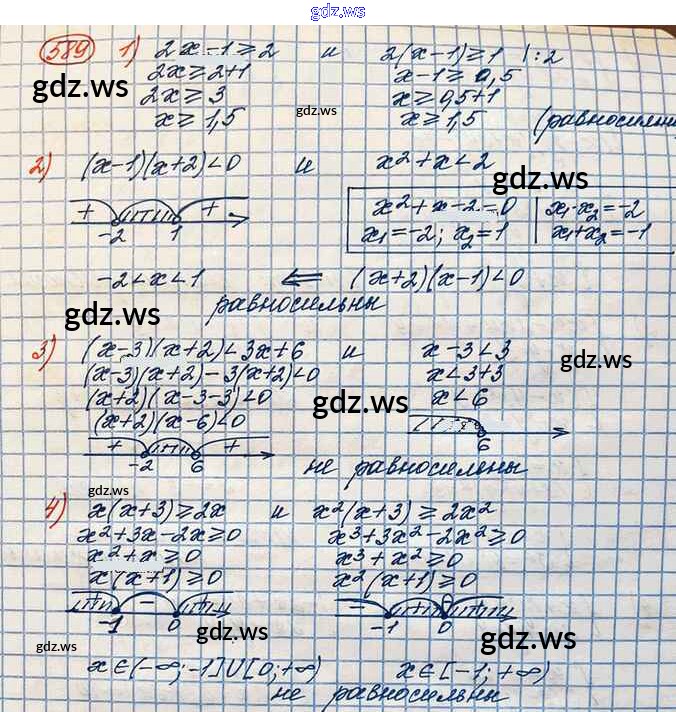 gdz.ws
589 1) 2x-1≥2 и 2(x-1)≥1 |:2
2x≥2+1 x-1≥0,5
gdz.ws
2x≥3 x≥0,5+1
gdz.ws
x≥1,5 x≥1,5 (равносильны
2) (x-1)(x+2)<0 и x²+x<2
gdz.ws
+ +
-2 1
x²+x-2=0 x₁·x₂=-2
x₁=-2; x₂=1 x₁+x₂=-1
-2<x<1 ⇐ (x+2)(x-1)<0
равносильны
gdz.ws
3) (x-3)(x+2)<3x+6 и x-3<3
(x-3)(x+2)-3(x+2)<0 x<3+3
gdz.ws
(x+2)(x-3-3)<0 x<6
gdz.ws
(x+2)(x-6)<0
+ +
-2 6 6
не равносильны
gdz.ws
4) x(x+3)≥2x и x²(x+3)≥2x²
x²+3x-2x≥0 x³+3x²-2x²≥0
x²+x≥0 x³+x²≥0
x(x+1)≥0 x²(x+1)≥0
+ - + - + +
-1 0 -1 0
gdz.ws
gdz.ws
gdz.ws
x∈(-∞;-1]U[0;+∞) x∈[-1;+∞)
не равносильны